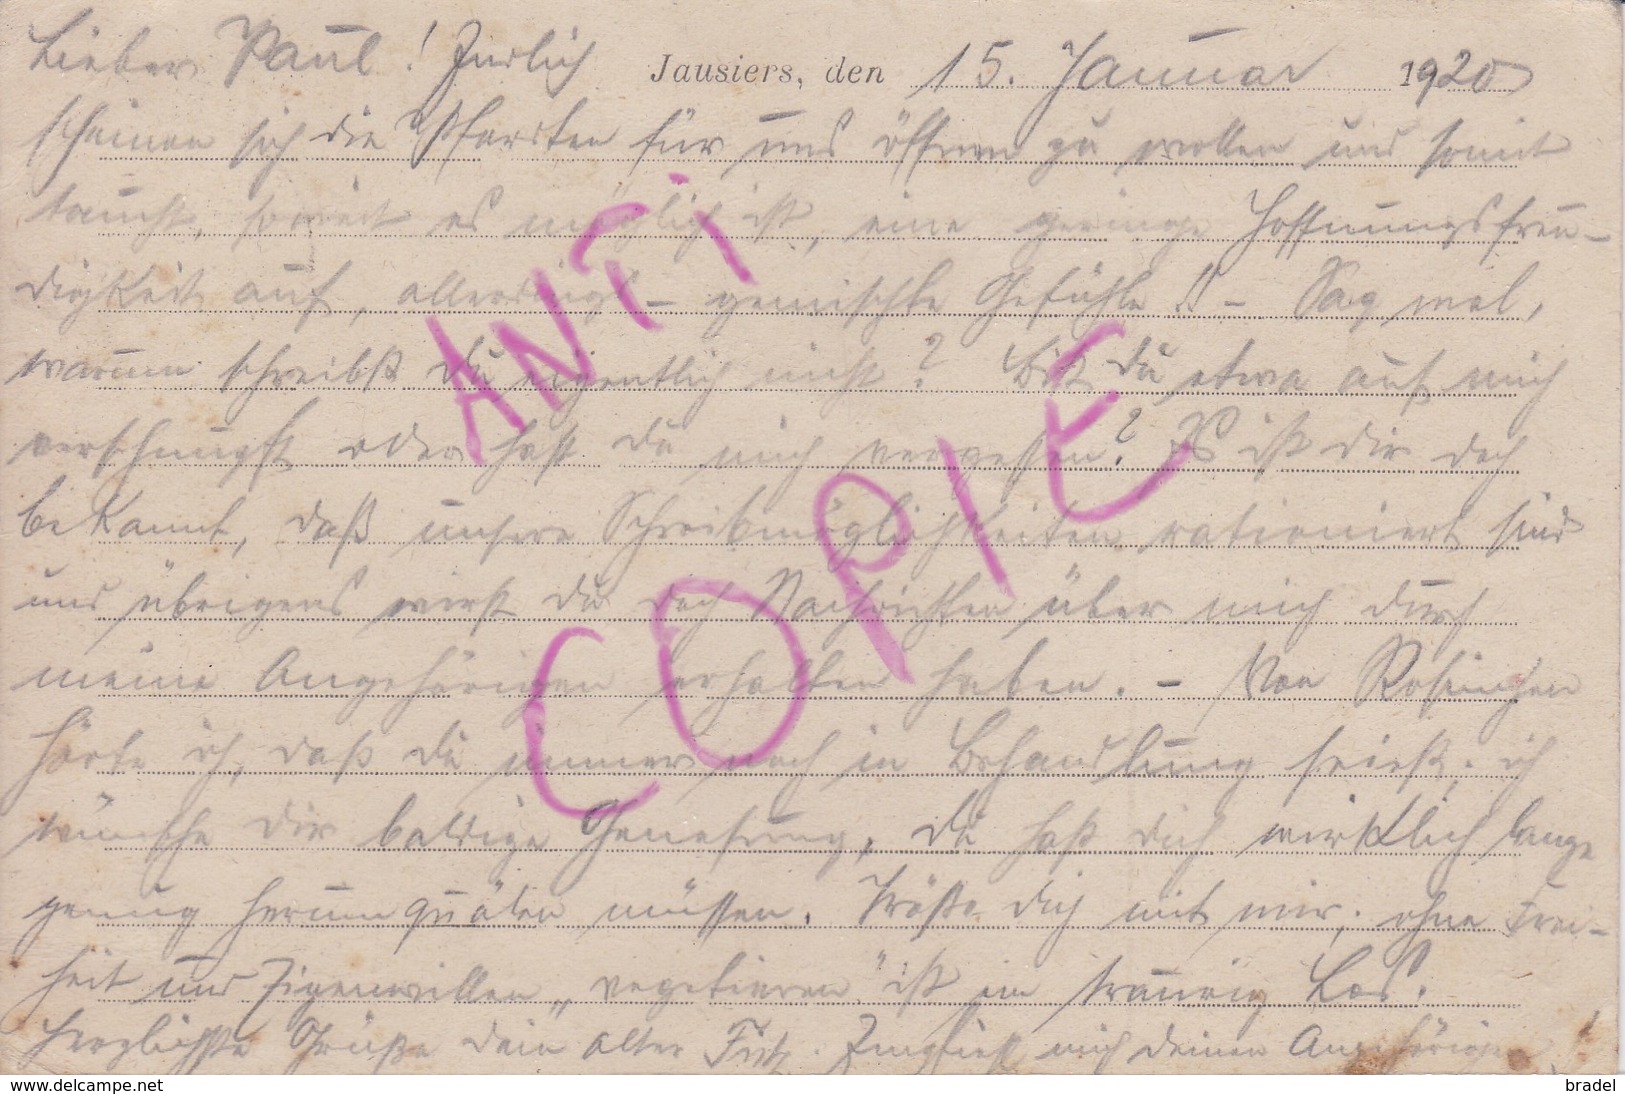 Lieber Paul! Endlich Jausiers, den 15. Januar 1920
scheinen sich die Pforten für uns öffnen zu wollen und somit
taucht, soweit es möglich ist, eine geringe Hoffnungsfreu-
digkeit auf, allerdings – gemischte Gefühle! – Sag mal,
warum schreibst du eigentlich nicht? Bist du etwa auf mich
verschnupft oder hast du mich vergessen? Es ist dir doch
bekannt, daß unsere Schreibmöglichkeiten rationiert sind
und übrigens wirst du doch Nachrichten über mich durch
meine Angehörigen erhalten haben. – Von
hörte ich, daß du immer noch in Behandlung seiest; ich
wünsche dir baldige Genesung, du hast dich wirklich lange
genug herumquälen müssen. Tröste dich mit mir; ohne Frei-
heit und Eigenwillen „vegetieren" ist ein traurig Los.
Herzlichste Grüße dein alter Fritz. mich deinen Angehörigen!
ANTI
COPIE
www.delcampe.net
bradel